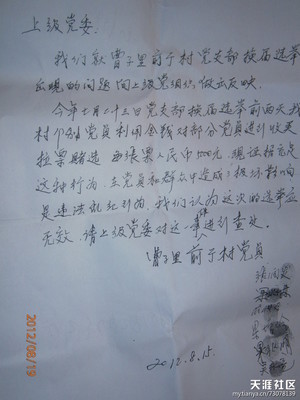 上级党委:
我们就曹子里前于村党支部换届选举
出现的问题向上级党组织做出反映。
今年七月二十三日党支部换届选举前两天我
村个别党员利用金钱对部分党员进行收买
拉票贿选
张票人民币1000元
这种行为,在党员和群众中造成了极坏影响
是违法乱纪行为,我们认为这次的选举应
无效,请上级党委对这一事件进行查处。
曹子里前于村党员
2012.8.15.
2012/08/19
天涯社区
http://mytianya.cn/73078139